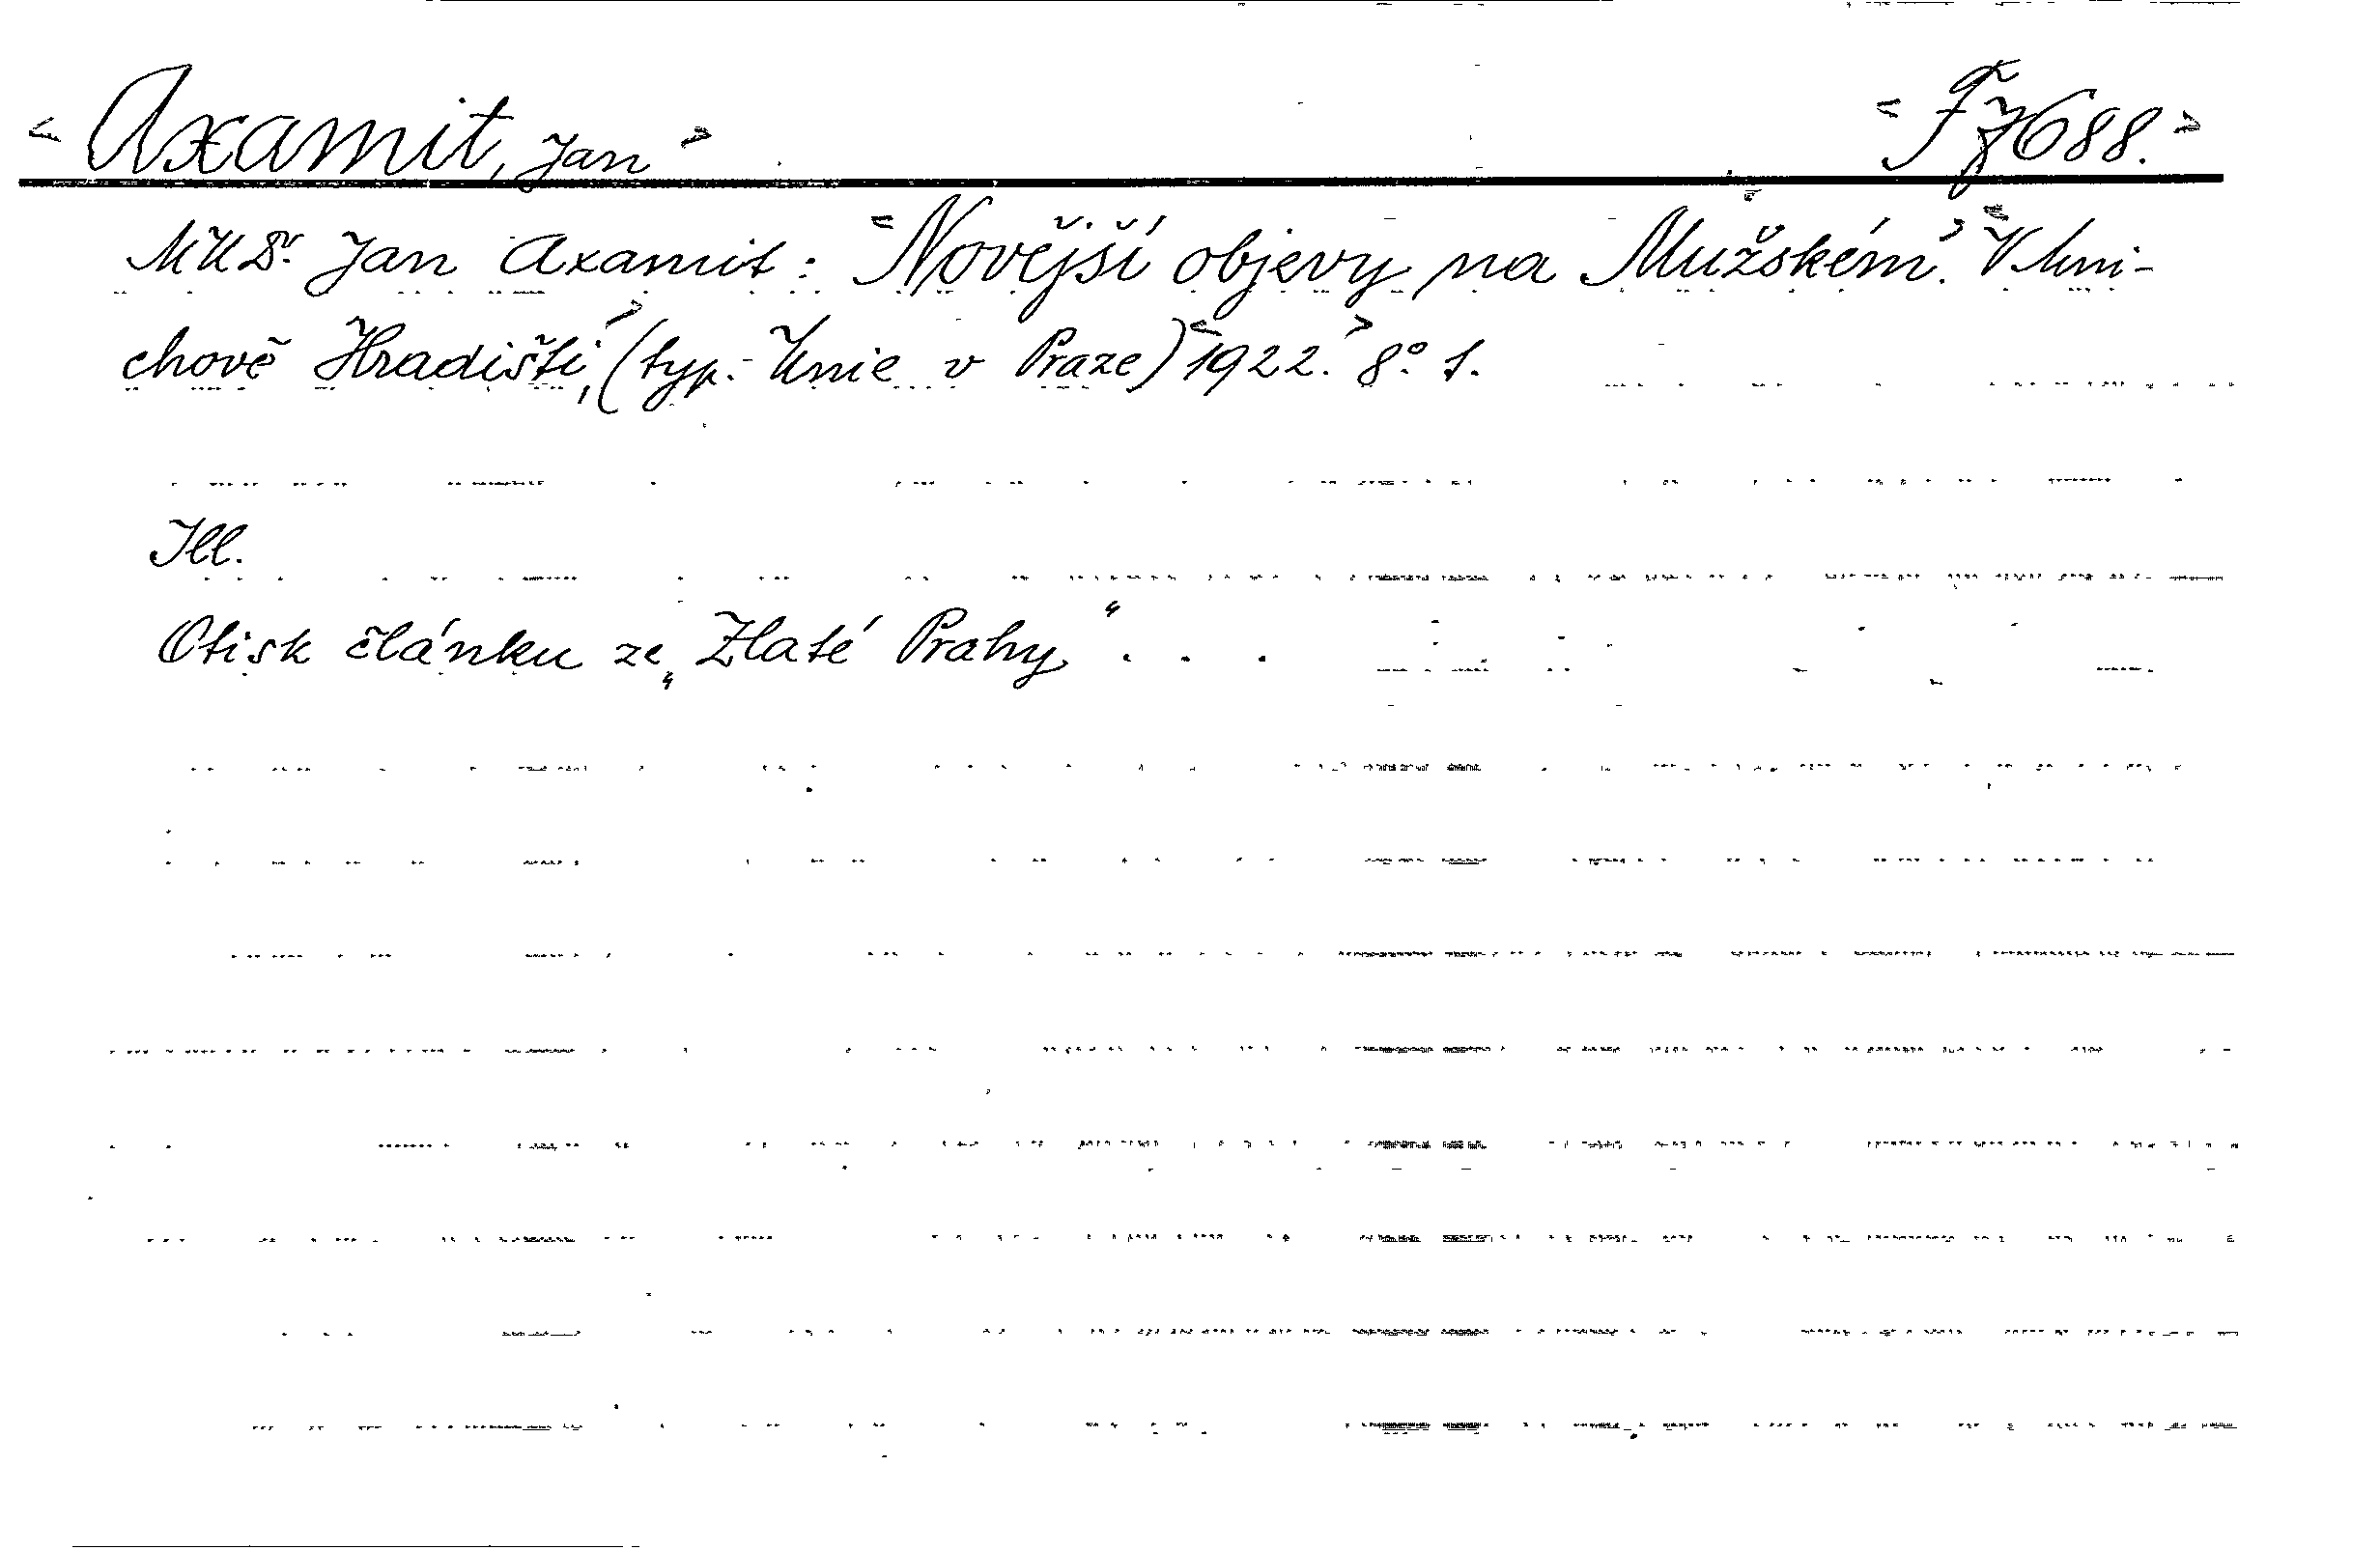 <Axamit, Jan> <F 7688.>
MUDr. Jan Axamit: <Novější objevy na Mužském.> <V Mni-
chově Hradišti,> (typ. Unie v Praze) <1922.> 8°. 1.
Ill.
Otisk článku ze „Zlaté Prahy“ . . .